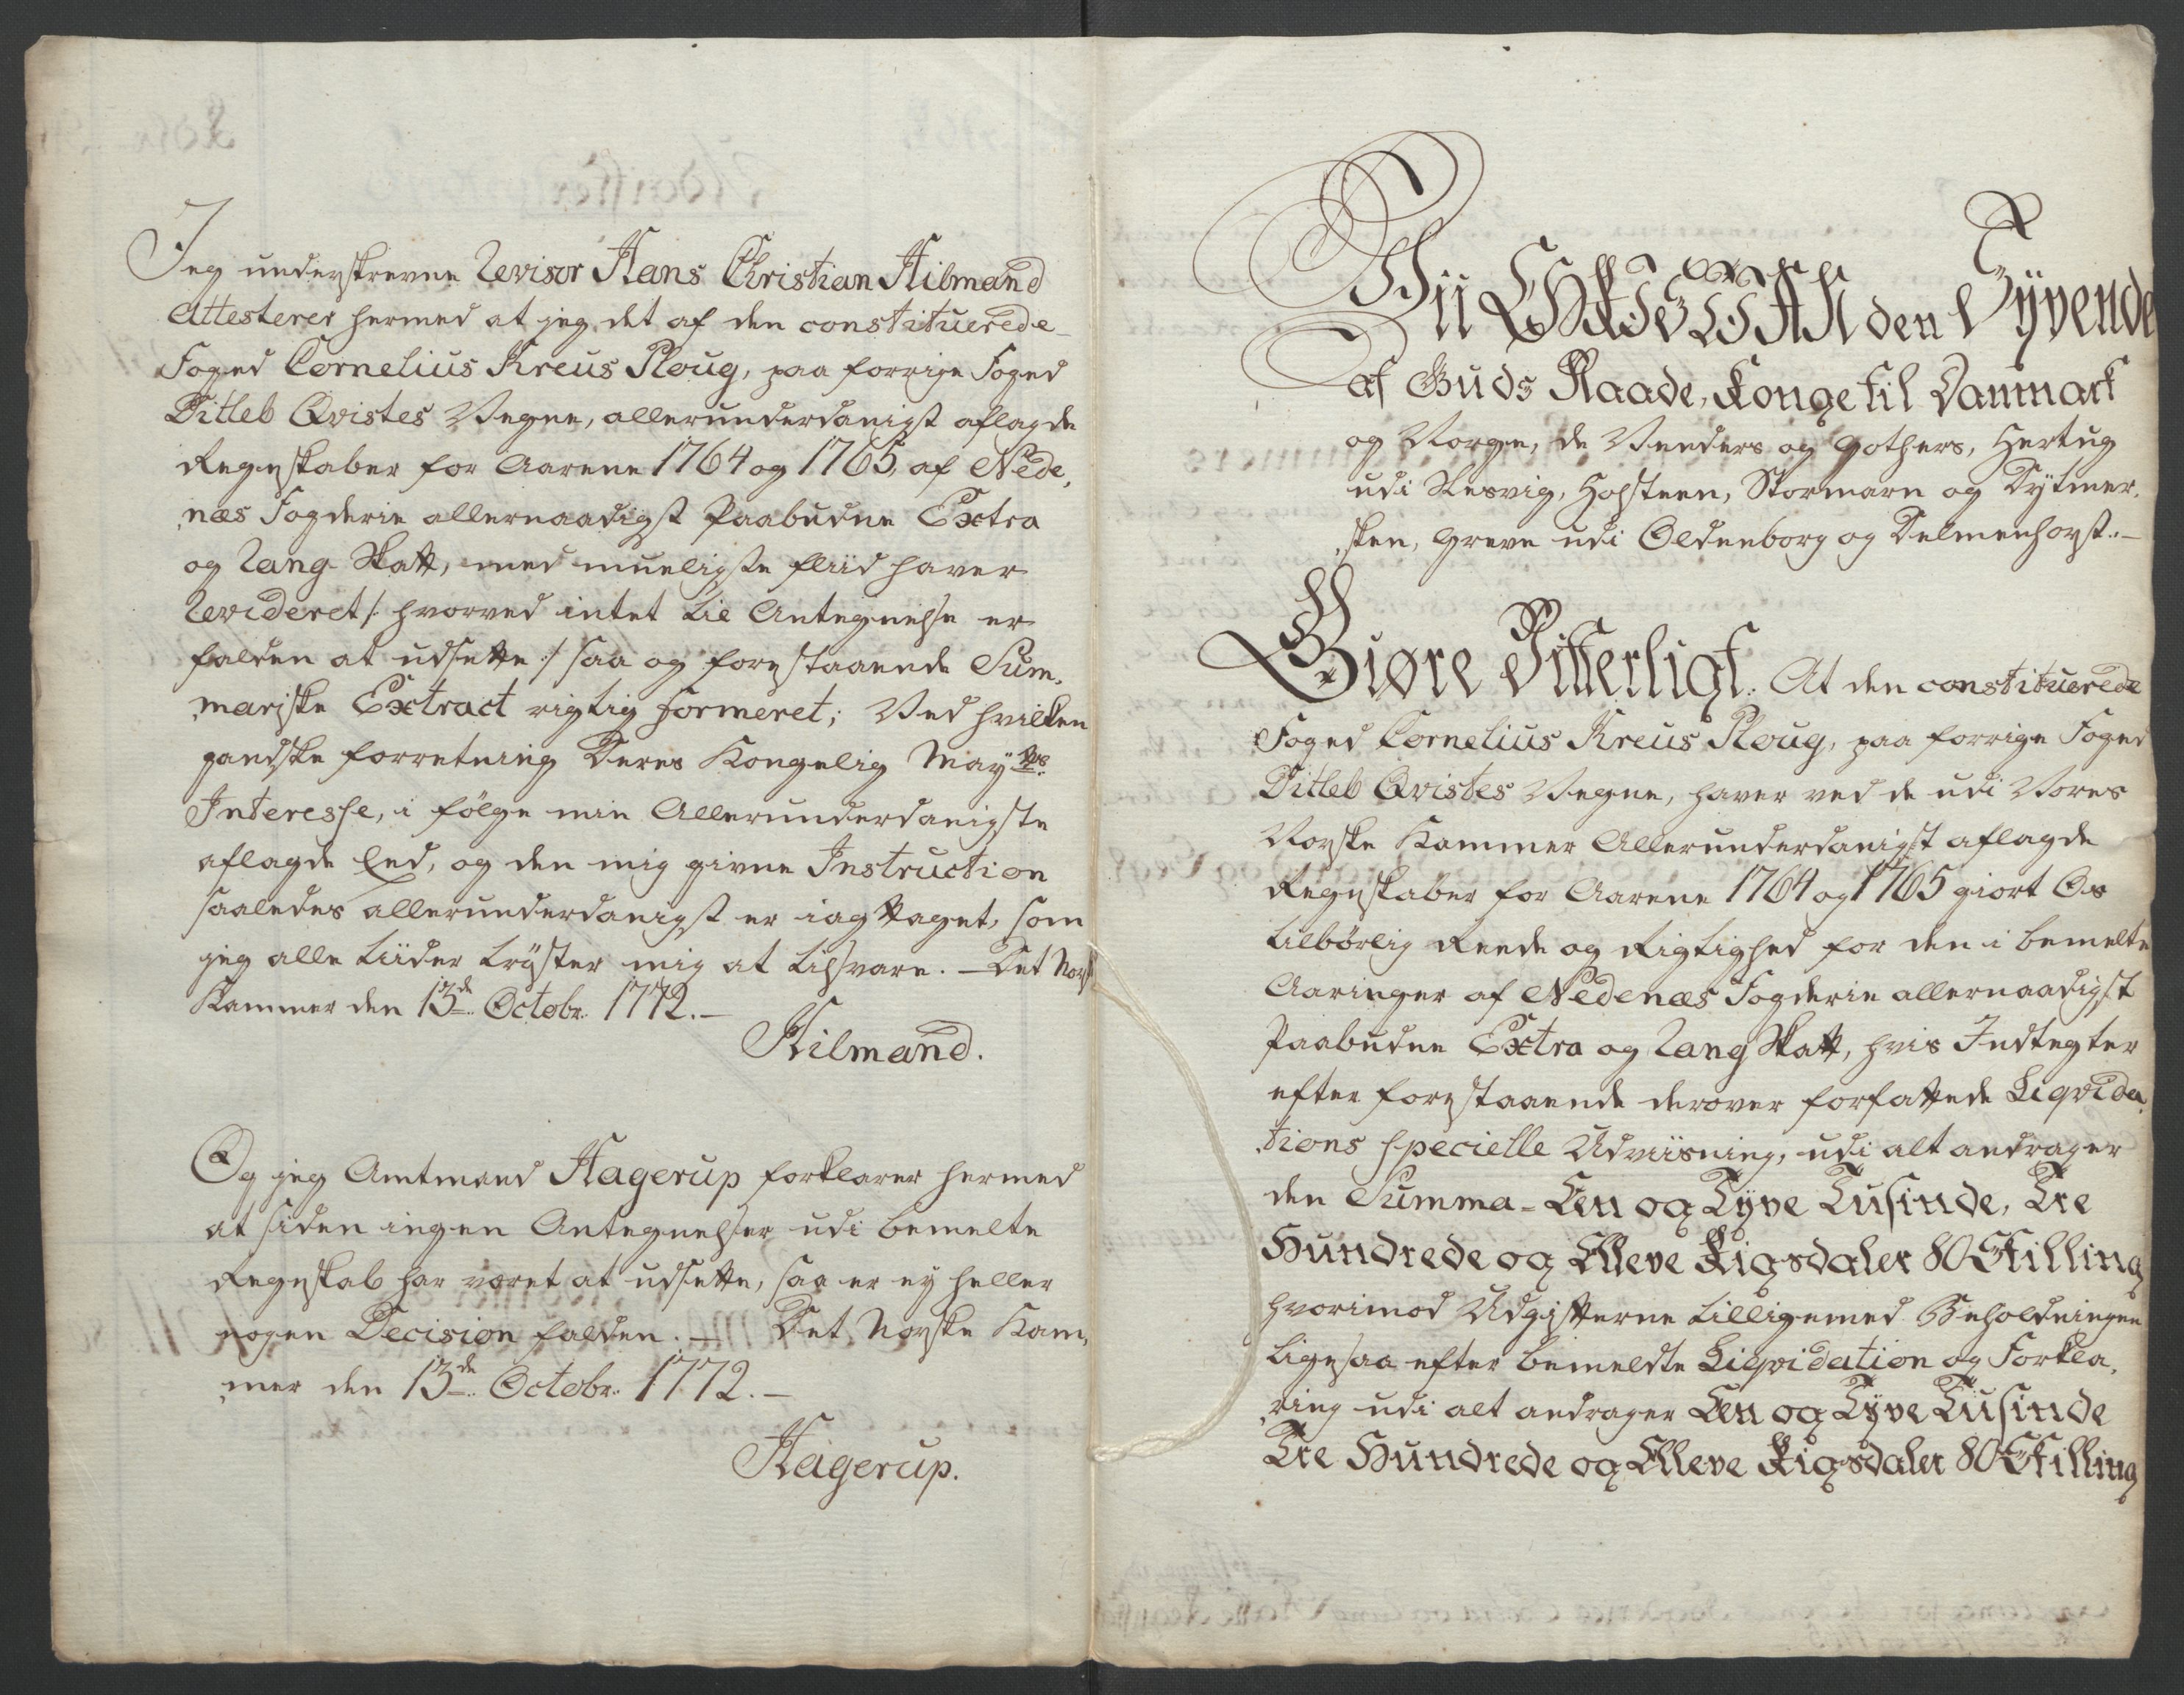 Jeg underskrevne Revisor Hans Christian Hilmand
Attesterer hermed at jeg det af den constituerede
Foged Cornelius Kreus Ploug, paa forrige Foged
Ditleb Qvistes Vegne, allerunderdanigst aflagde
Regnskaber for Aarene 1764 og 1765, af Nede,
næs Fogderie allernaadigst Paabudne Extra
og Rang Skatt, med mueligste fliid haver
Revideret /: hvorved intet til Antegnelse er
falden at udsette :/ saa og forestaaende Sum,
mariske Extract rigtig formeret; Ved hvilken
gandske forretning Deres Kongelig Mayts.
Interesse, i følge min Allerunderdanigste
aflagde Eed, og den mig givne Instruction
saaledes allerunderdanigst er iagttaget, som
jeg alle tiider trøster mig at tilsvare. – Det Norske
Kammer den 13de. Octobr. 1772. –
Hilmand.
Og jeg Amtmand Hagerup forklarer hermed
at siden ingen Antegnelser udi bemelte
Regnskab har været at udsette, saa er ey heller
nogen Decision falden. – Det Norske Kam,
mer den 13de. Octobr. 1772. –
Hagerup.
Vii CHRISTIAN den Syvende
af Guds Naade, Konge til Danmark
og Norge, de Venders og Gothers, Hertug
udi Slesvig, Holsteen, Stormarn og Dytmer,
sken, Greve udi Oldenborg og Delmenhorst. –
Giøre Vitterligt: At den constituerede
Foged Cornelius Kreus Ploug, paa forrige Foged
Ditleb Qvistes Vegne, haver ved de udi Vores
Norske Kammer Allerunderdanigst aflagde
Regnskaber for Aarene 1764 og 1765 giort Os
tilbørlig Reede og Rigtighed for den i bemelte
Aaringer af Nedenæs Fogderie allernaadigst
Paabudne Extra og Rang Skatt, hvis Indtegter
efter forestaaende derover forfattede Liqvida,
tions specielle Udviisning, udi alt andrager
den Summa = Een og Tyve Tusinde, Tre
Hundrede og Elleve Rigsdaler 80 Skilling
hvorimod Udgifterne tilligemed Beholdningen
ligesaa efter bemeldte Liqvidation og Forkla,
ring udi alt andrager Een og Tyve Tusinde
Tre Hundrede og Elleve Rigsdaler 80 Skilling